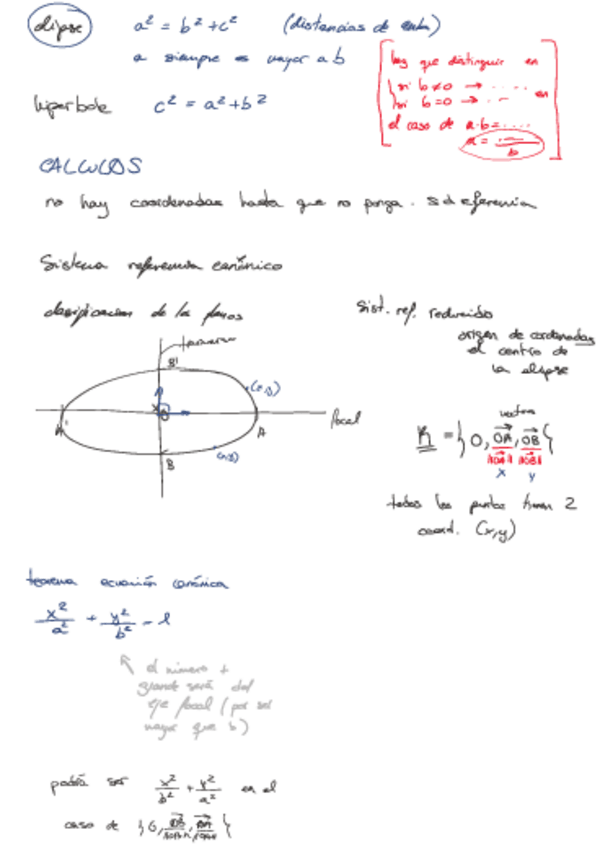 elipse a² = b² + c² (distancias de antes)
a siempre es mayor a b
hay que distinguir en
si b≠0 → .....
si b=0 → ... en
el caso de a·b = ....
a = ... / b
hiperbole c² = a² + b²
CALCULOS
no hay coordenadas hasta que no ponga . s d referencia
Sistema referencia canónico
clasificacion de la
sist. ref. reducido
origen de cordenadas
el centro de
la elipse
B'
focal
A' A
B
vectores
R = {0, OA/||OA||, OB/||OB||}
x y
todos los puntos tienen 2
coord. (x,y)
teorema ecuación canónica
x²/a² + y²/b² = 1
el número +
grande será del
eje focal (por ser
mayor que b)
podría ser x²/b² + y²/a² en el
caso de {0, OB/||OB||, OA/||OA||}